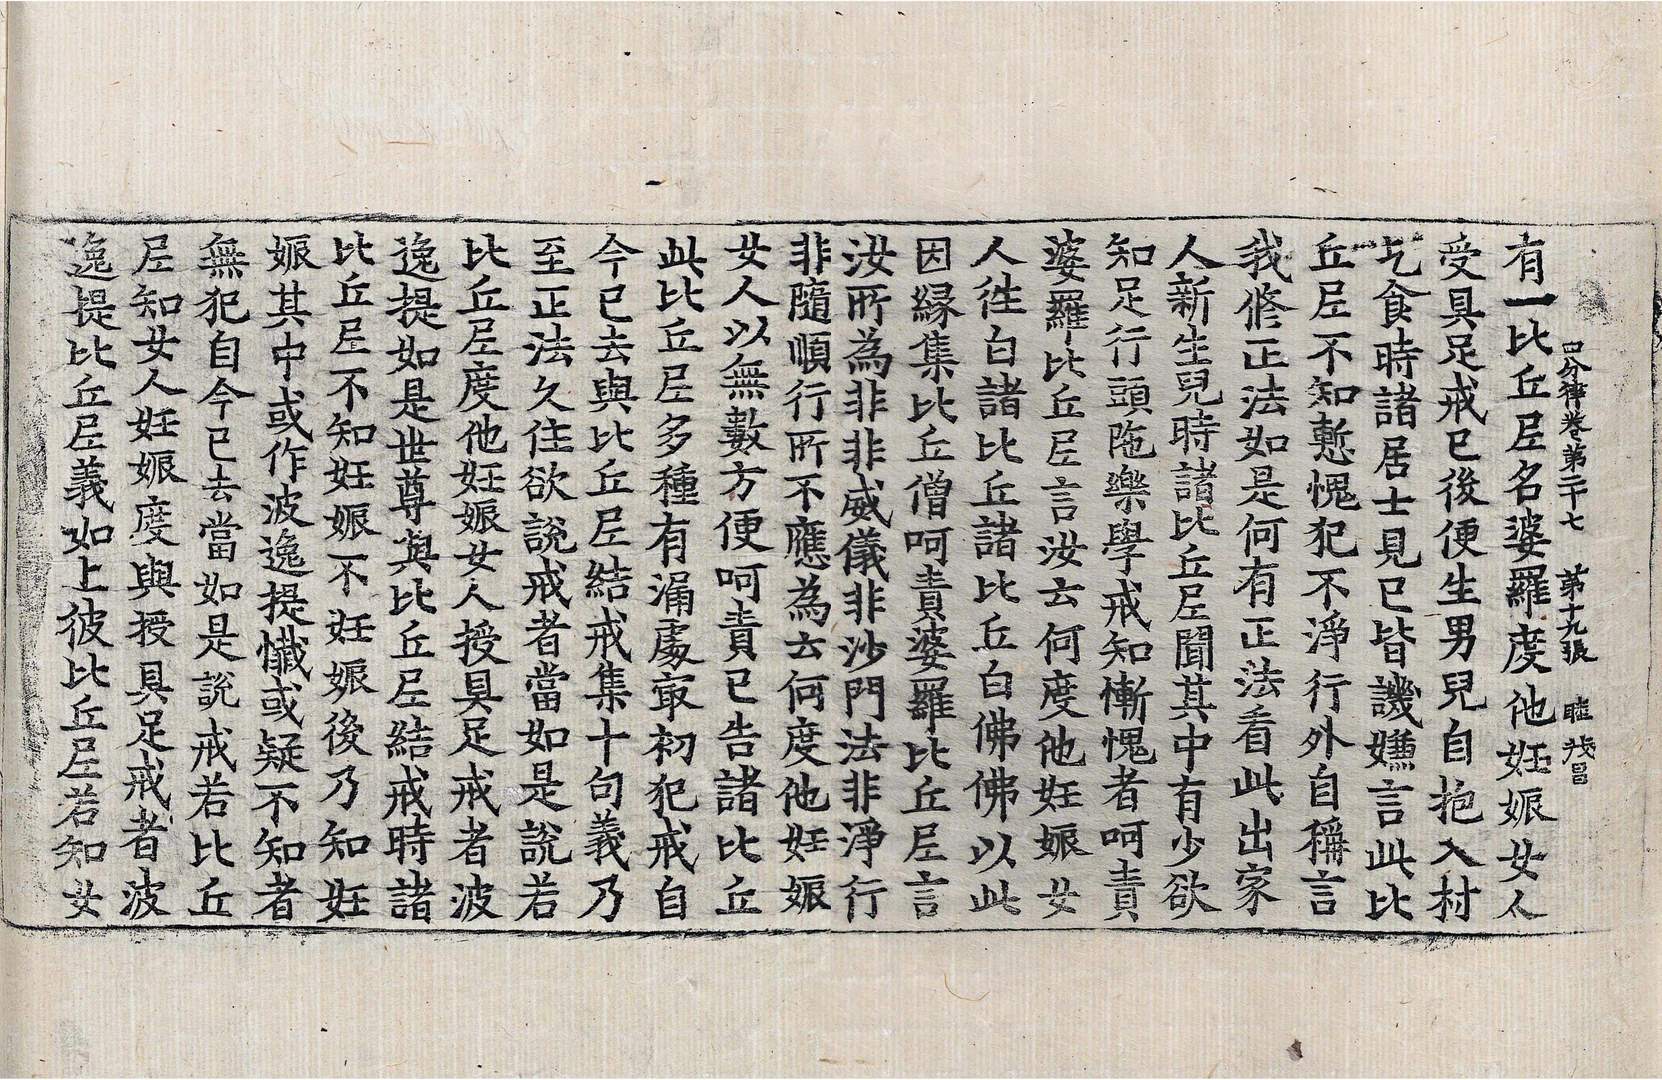 四分律卷第二十七 第十九張 睦
有一比丘尼名婆羅度他妊娠女人
受具足戒已後便生男兒自抱入村
乞食時諸居士見已皆譏嫌言此比
丘尼不知慙愧犯不淨行外自稱言
我修正法如是何有正法看此出家
人新生兒時諸比丘尼聞其中有少欲
知足行頭陁樂學戒知慚愧者呵責
婆羅比丘尼言汝云何度他妊娠女
人徃白諸比丘諸比丘白佛佛以此
因緣集比丘僧呵責婆羅比丘尼言
汝所為非非威儀非沙門法非淨行
非隨順行所不應為云何度他妊娠
女人以無數方便呵責已告諸比丘
此比丘尼多種有漏處冣初犯戒自
今已去與比丘尼結戒集十句義乃
至正法久住欲說戒者當如是說若
比丘尼度他妊娠女人授具足戒者波
逸提如是世尊與比丘尼結戒時諸
比丘尼不知妊娠不妊娠後乃知妊
娠其中或作波逸提懺或疑不知者
無犯自今已去當如是說戒若比丘
尼知女人妊娠度與授具足戒者波
逸提比丘尼義如上彼比丘尼若知女